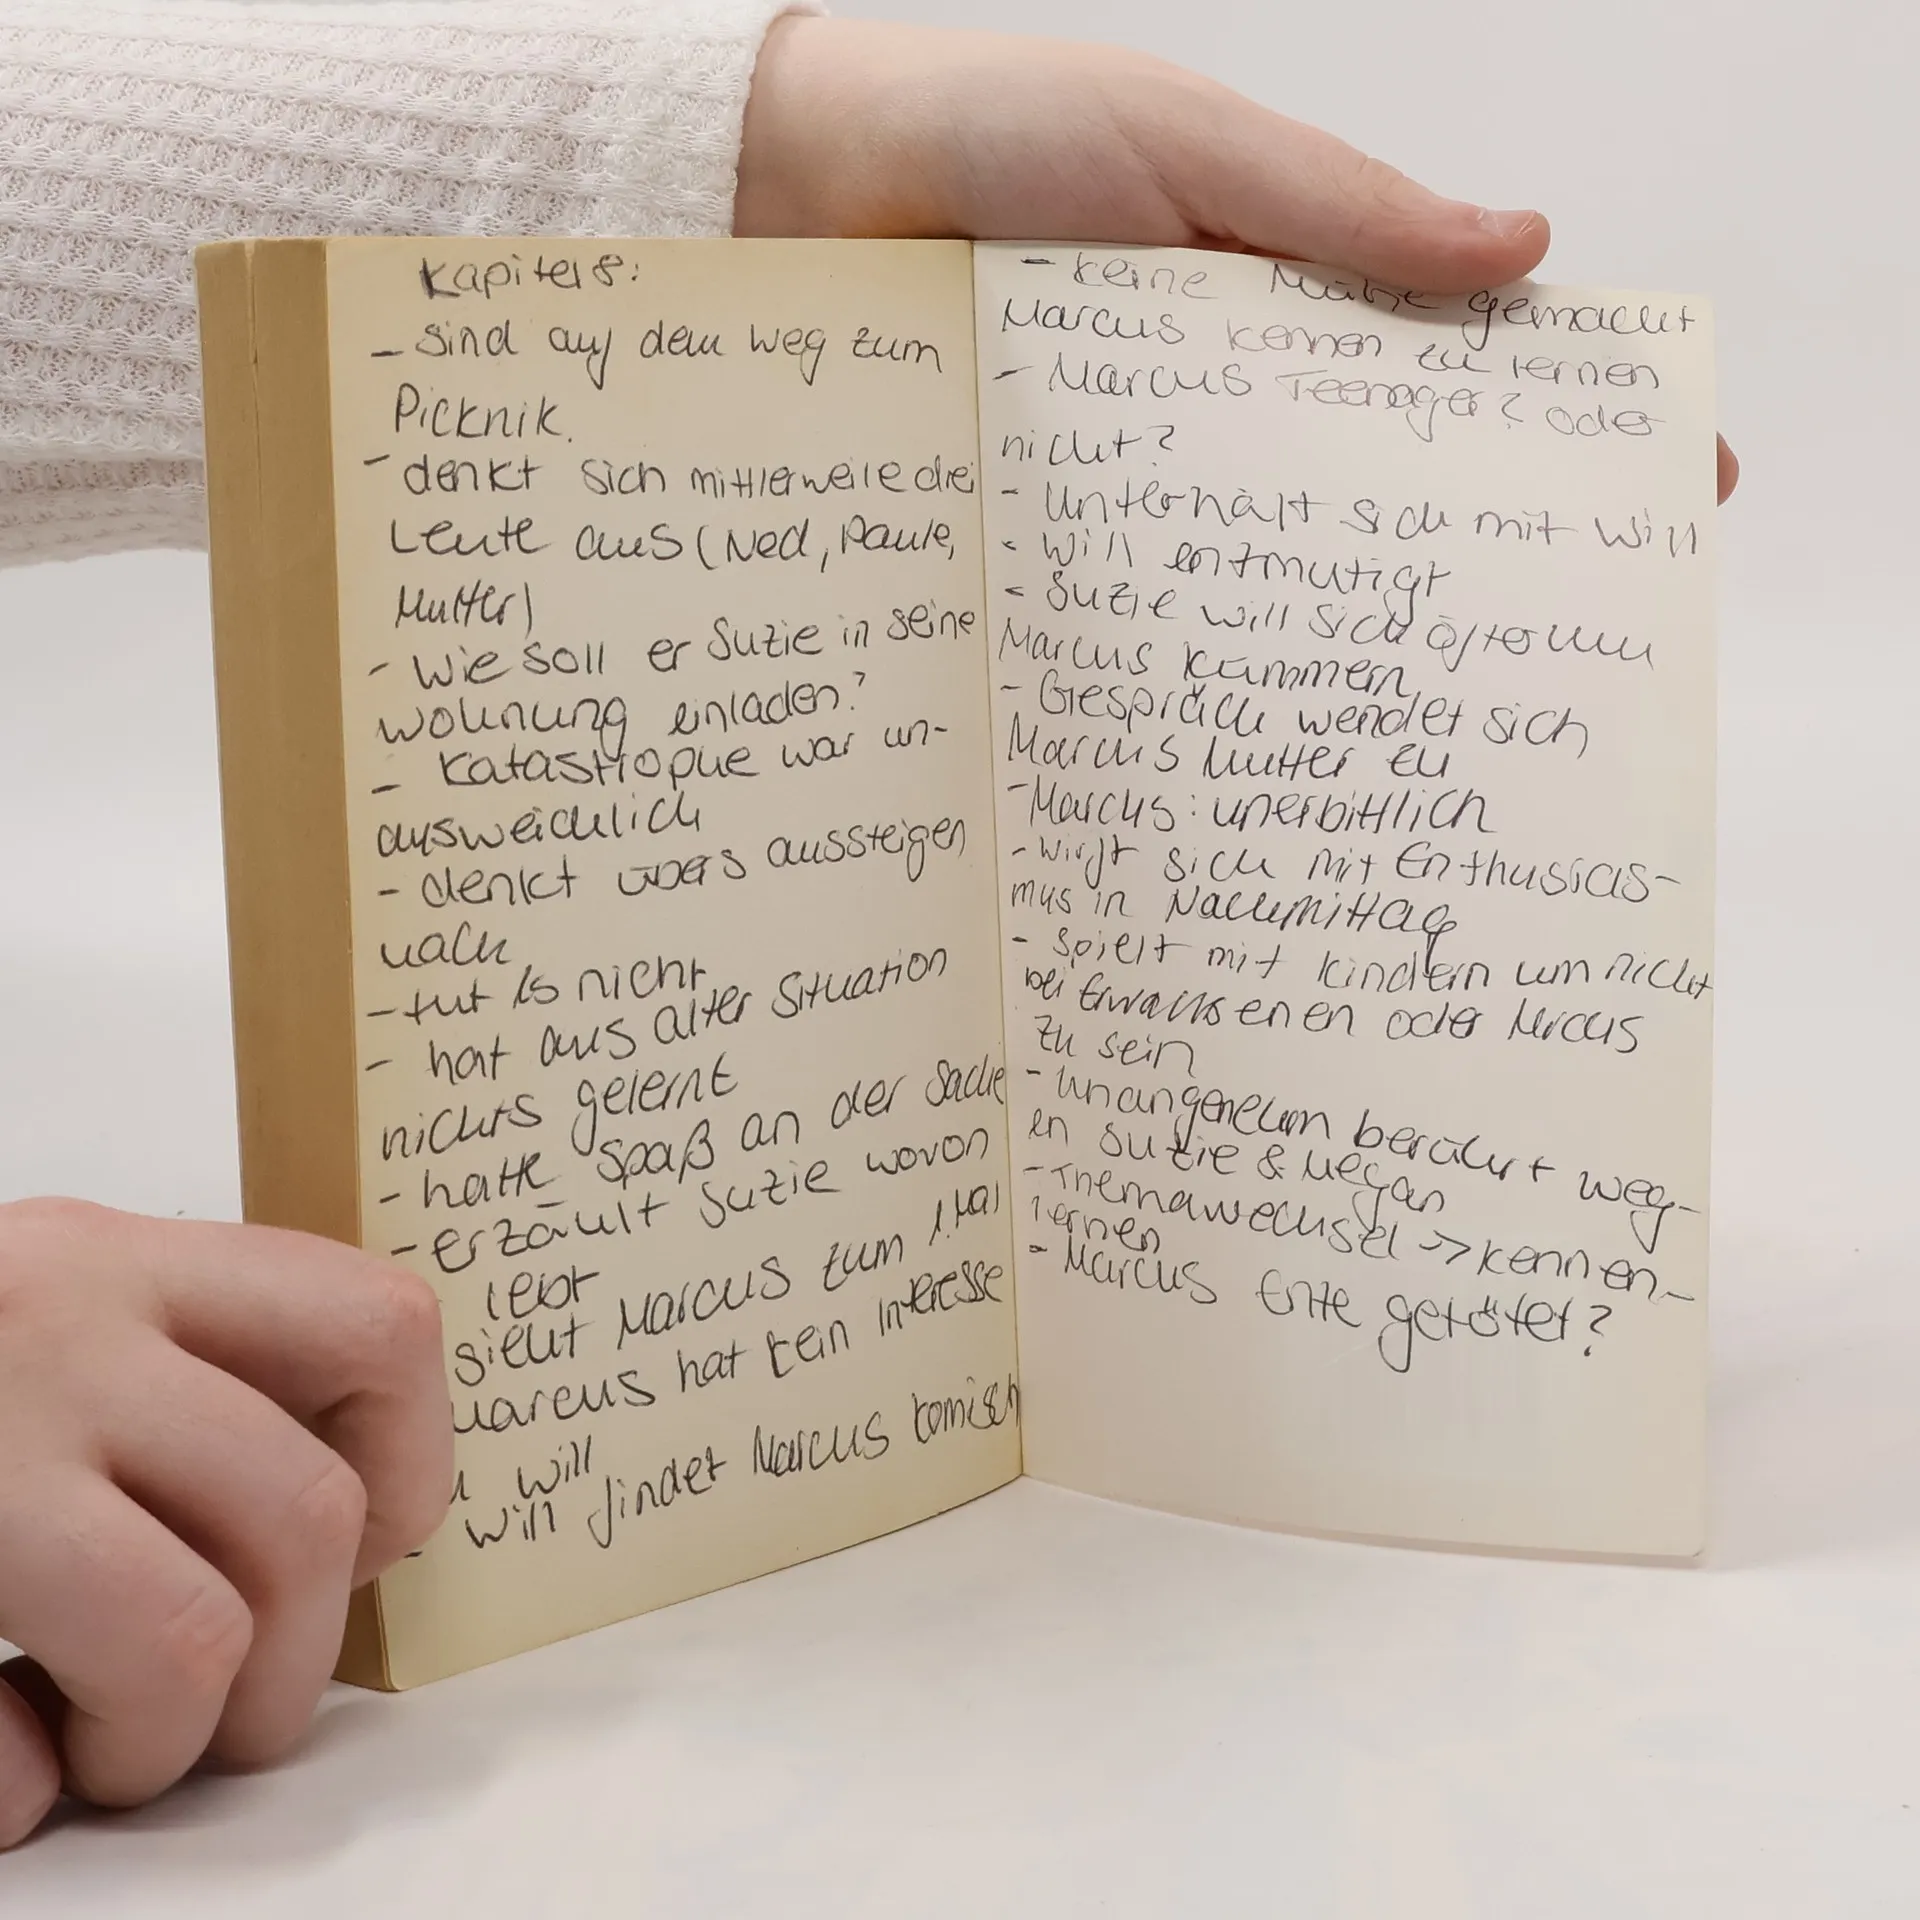 Kapitel 8:
- sind auf dem Weg zum
Picknik.
- denkt sich mittlerweile drei
Leute aus (Ned, Paule,
Mutter)
- Wie soll er Suzie in seine
Wohnung einladen?
- Katastrophe war un-
ausweichlich
- denkt übers aussteigen
nach
- tut es nicht
- hat aus alter Situation
nichts gelernt
- hatte Spaß an der Sache
- erzählt Suzie wovon
lebt
sieht Marcus zum 1. Mal
Marcus hat kein Interesse
Will
- Will findet Marcus komisch
- keine Mühe gemacht
Marcus kennen zu lernen
- Marcus Teenager? oder
nicht?
- Unterhält sich mit Will
- Will entmutigt
- Suzie will sich öfter um
Marcus kümmern
- Gespräch wendet sich
Marcus Mutter zu
- Marcus: unerbittlich
- wirft sich mit Enthusias-
mus in Nachmittag
- spielt mit Kindern um nicht
bei Erwachsenen oder Marcus
zu sein
- unangenehm berührt weg-
en Suzie & Megan
- Themawechsel -> kennen-
lernen
- Marcus Ente getötet?